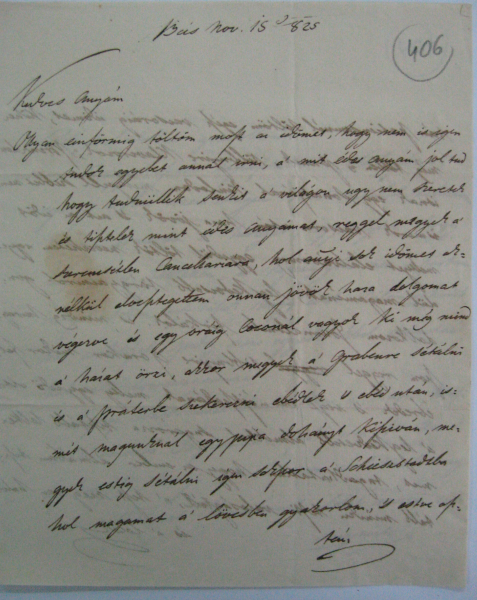 Bécs Nov. 15d 825
406
Kedves anyám
Olyan einförmig töltöm most az idömet, hogy nem is igen
tudok egyebet annál irni, a' mit édes anyám jol tud
hogy senkit a' világon ugy nem szeretek
és tisztelek mint édes anyámat, reggel megyek a
szerencsétlen Cancelariára, hol annyi sok idömet
nélkül elvesztegettem onnan jövök haza dolgomat
végezve és egy oráig Coconál vagyok ki még mind
a házat örzi, akkor megyek a Grabenre sétálni
is a' práterbe szekerezni ebédlek 's ebéd után, is-
mét magunknal egy pipa dohányt kiszíván, me-
gyek estig sétálni igen sokszor a' 
hol magamat a' lövésben gyakorlom, 's estve